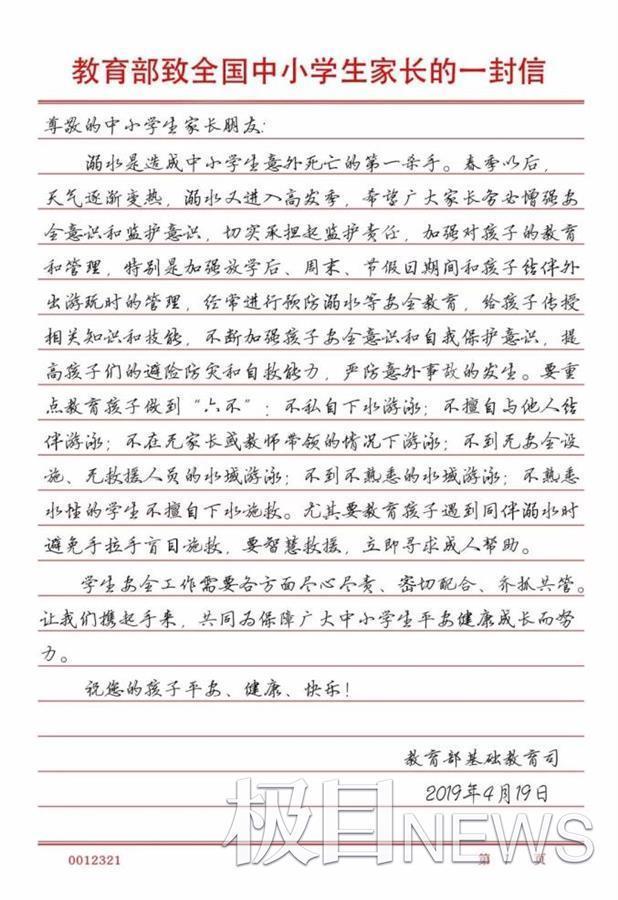 教育部致全国中小学生家长的一封信
尊敬的中小学生家长朋友:
溺水是造成中小学生意外死亡的第一杀手。春季以后,
天气逐渐变热,溺水又进入高发季,希望广大家长务必增强安
全意识和监护意识,切实承担起监护责任,加强对孩子的教育
和管理,特别是加强放学后、周末、节假日期间和孩子结伴外
出游玩时的管理,经常进行预防溺水等安全教育,给孩子传授
相关知识和技能,不断加强孩子安全意识和自我保护意识,提
高孩子们的避险防灾和自救能力,严防意外事故的发生。要重
点教育孩子做到“六不”:不私自下水游泳;不擅自与他人结
伴游泳;不在无家长或教师带领的情况下游泳;不到无安全设
施、无救援人员的水域游泳;不到不熟悉的水域游泳;不熟悉
水性的学生不擅自下水施救。尤其要教育孩子遇到同伴溺水时
避免手拉手盲目施救,要智慧救援,立即寻求成人帮助。
学生安全工作需要各方面尽心尽责、密切配合、齐抓共管。
让我们携起手来,共同为保障广大中小学生平安健康成长而努
力。
祝您的孩子平安、健康、快乐!
教育部基础教育司
2019年4月19日
极目NEWS
0012321
第 页